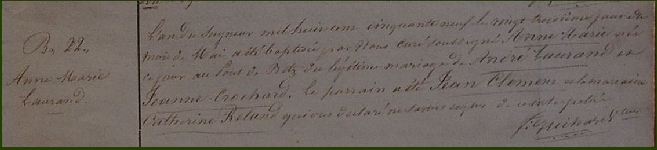 B. 22.
Anne Marie
Laurand.
L'an du Seigneur mil huit cent cinquante neuf le vingt troisième jour du
mois de Mai a été baptisée par Nous curé soussigné Anne Marie née
ce jour au bout de Retz du légitime mariage de André Laurand et
Jeanne Crochard. Le parrain a été Jean Clemens et la marraine
Catherine Relund qui ont déclaré ne savoir signer de ce interpellé